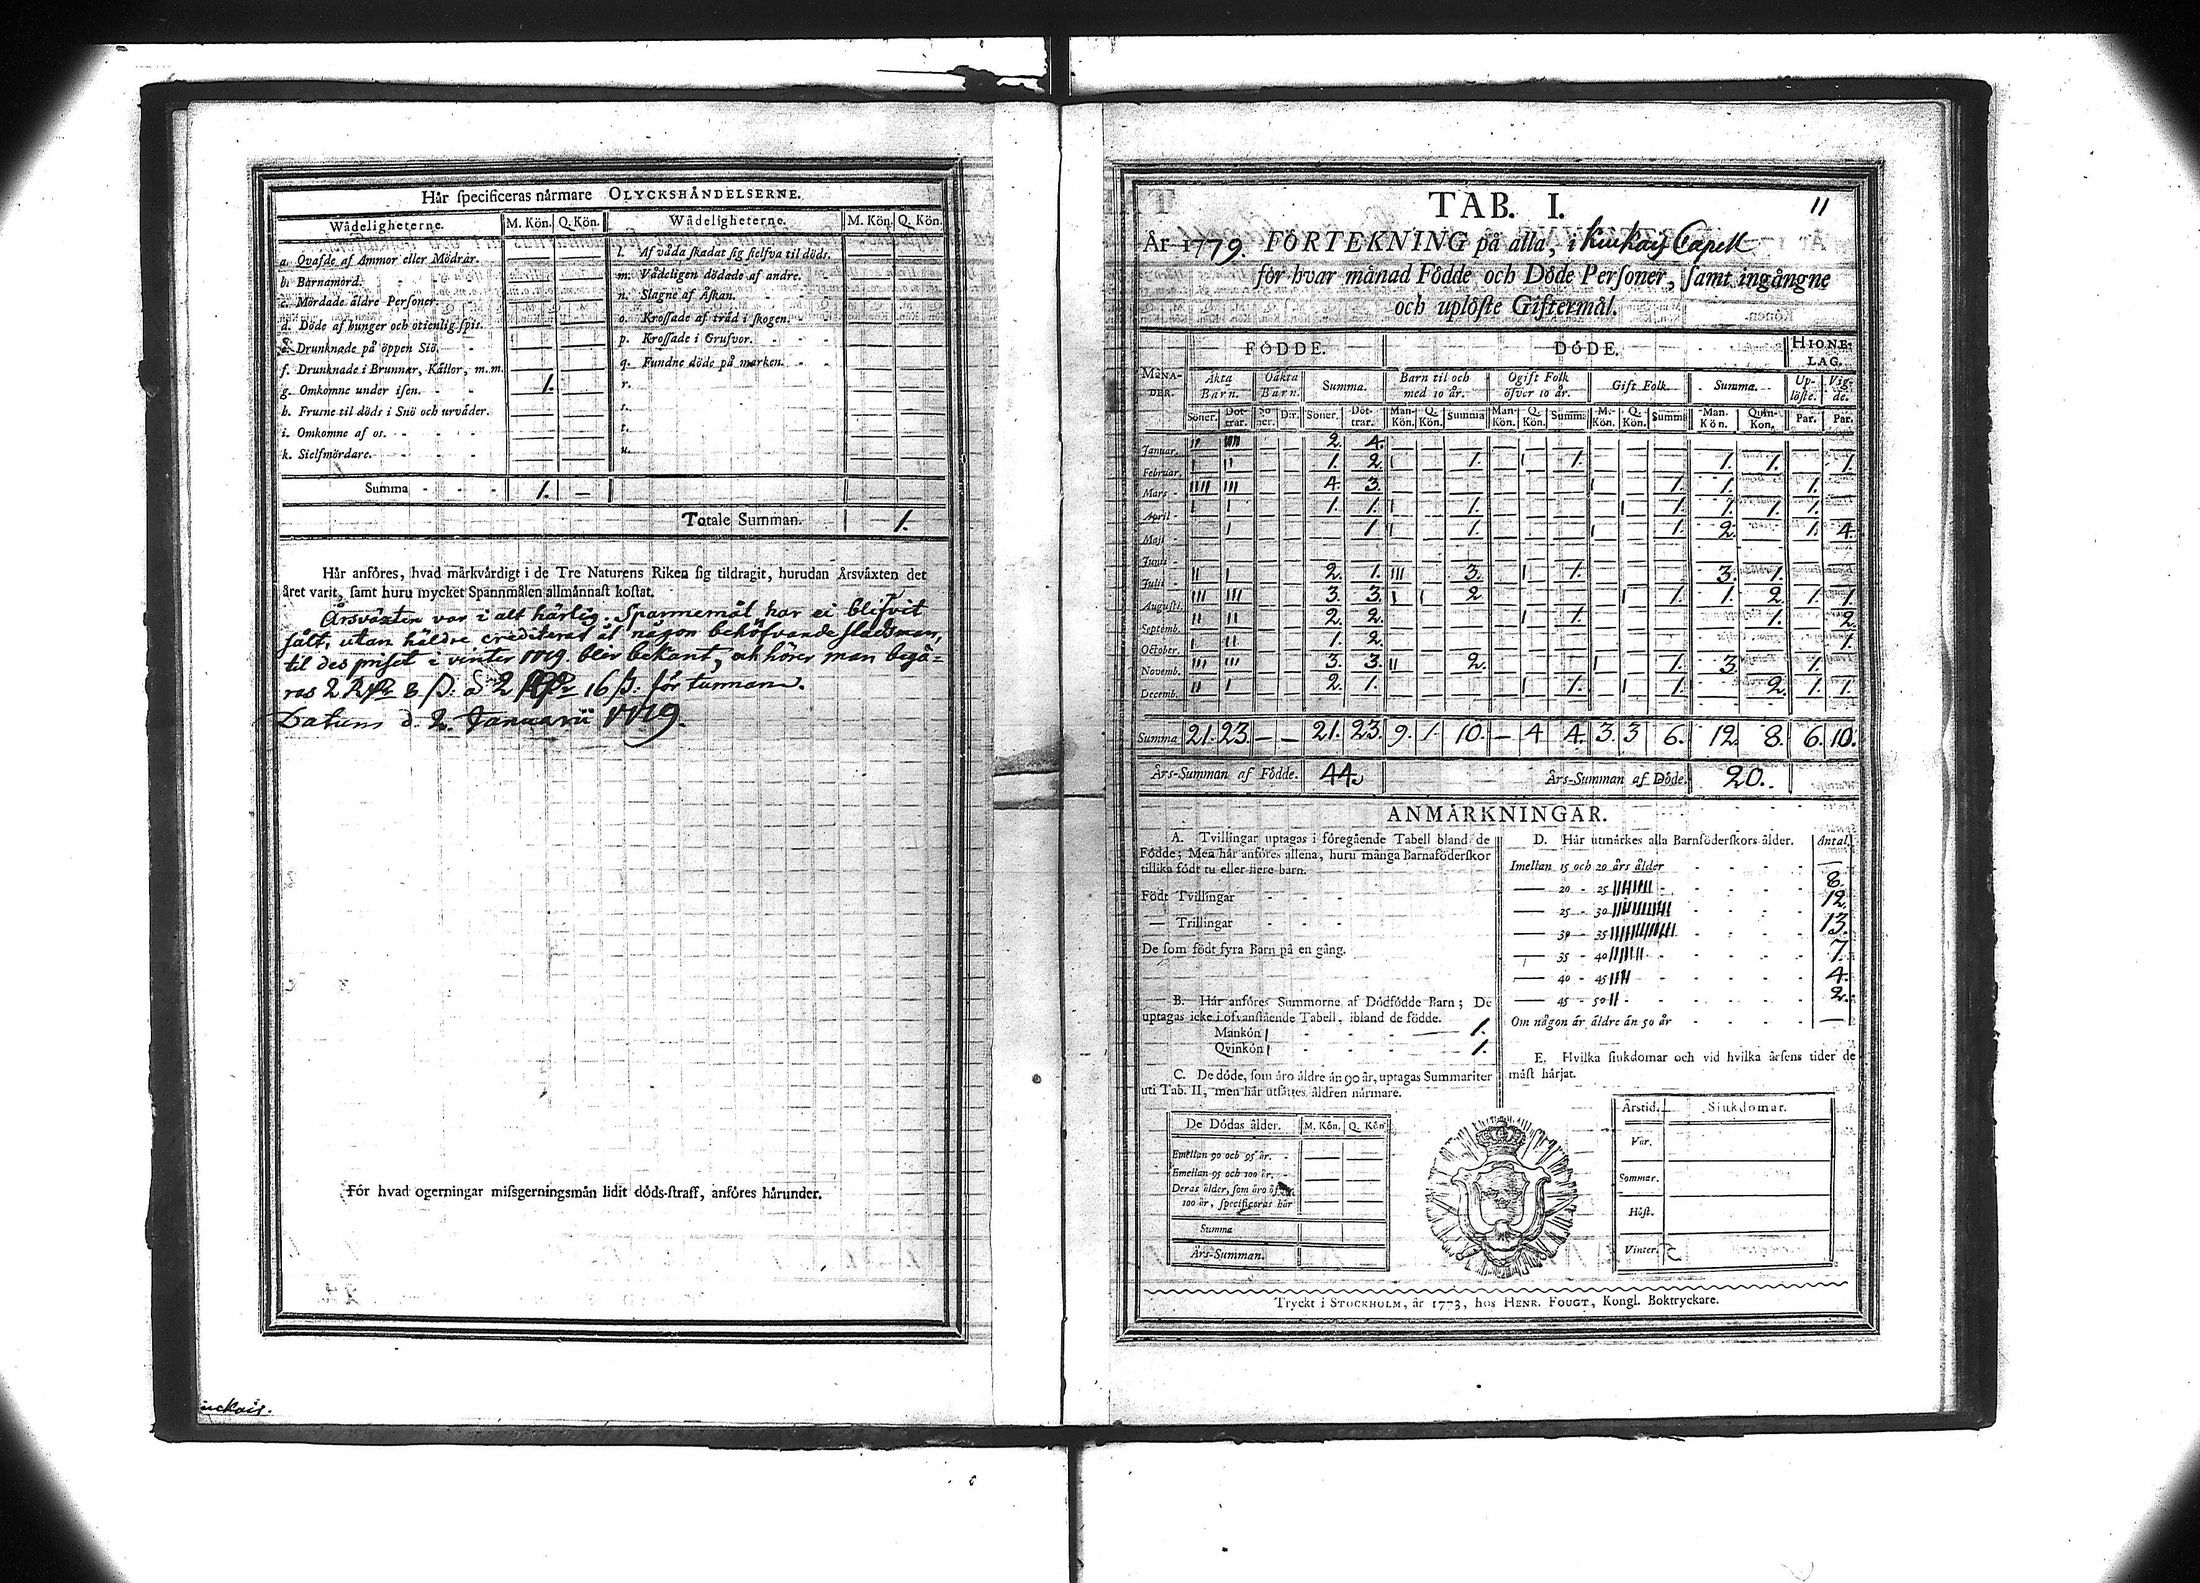 Hår ſpecificeras nårmare OLYCKSHÅNDELSERNE.
Wådeligheterne. M. Kön. Q. Kön. Wådeligheterne. M. Kön. Q. Kön.
a. Qvafde af Ammor eller Mödrar. — — l. Af våda ſkadat ſig ſielfva til döds. — —
b. Barnamord. — — m. Vådeligen dödade af andre. — —
c. Mördade äldre Perſoner. — — n. Slagne af Åſkan. — —
d. Döde af hunger och otienlig ſpis. — — o. Kroſſade af tråd i ſkogen. — —
e. Drunknade på öppen Siö. — — p. Kroſſade i Grufvor. — —
f. Drunknade i Brunnar, Kållor, m.m. — — q. Fundne döde på marken. — —
g. Omkomne under iſen. 1. — r. — —
h. Fruſne til döds i Snö och urväder. — — s. — —
i. Omkomne af os. — — t. — —
k. Sielfmördare. — — u. — —
Summa 1. —
Totale Summan. 1.
Hår anföres, hvad mårkvårdigt i de Tre Naturens Riken ſig tildragit, hurudan Årsvåxten det
året varit, ſamt huru mycket Spannmålen allmånnaſt koſtat.
Årsväxten var i alt härlig. Spannemål har ei blifvit
ſålt, utan håldre crediterat åt någon behöfvande
til des priſet i vinter 1779 blir bekant, och hörer man begä=
ras 2 8 ß: à 2 16 ß: för tunnan.
Datum d. 2. Januarii 1779.
För hvad ogerningar miſsgerningsmån lidit döds-ſtraff, anföres hårunder.
uckais.
TAB. I. 11
År 1779. FÖRTEKNING på alla, i Kiukais Capell
för hvar månad Födde och Döde Perſoner, ſamt ingångne
och uplöſte Giftermål.
MÅNADER. FÖDDE. DÖDE. HIONELAG.
Äkta Barn. Oäkta Barn. Summa. Barn til och med 10 år. Ogift Folk öfver 10 år. Gift Folk. Summa. Uplöſte. Vigde.
Söner. Döttrar. Söner. Dtr. Söner. Döttrar. Man-Kön. Q. Kön. Summa Man-Kön. Q. Kön. Summa M.-Kön. Q.-Kön. Summa Man. Kön. Quin-Kon. Par. Par.
Januar. II IIII 2. 4.
Februar. I II 1. 2. I 1. I 1. 1. 1. 1.
Mars IIII III 4. 3. I 1. 1. 1.
April I I 1. 1. I 1. I 1. 1. 1. 1.
Maji I 1 I 1. 1. 2. 1. 4.
Junii
Julii II I 2. 1. III 3. I 1. 3. 1.
Auguſti. III III 3. 3. I I 2. I 1. 1. 2. 1. 1
Septemb. II II 2. 2. I 1. 1. 2.
October. I II 1. 2. 1.
Novemb. III III 3. 3. II 2. I 1. 3. 1.
Decemb. II I 2. 1. I 1. I 1. 2. 1. 1.
Summa 21. 23. — — 21. 23. 9. 1. 10. — 4 4. 3. 3 6. 12. 8. 6. 10.
Års-Summan af Födde. 44. Års-Summan af Döde. 20.
ANMÅRKNINGAR.
A. Tvillingar uptagas i föregående Tabell bland de
Födde; Men hår anföres allena, huru många Barnaföderſkor
tillika födt tu eller flere barn.
Födt Tvillingar
— Trillingar
De ſom födt fyra Barn på en gång.
B. Hår anföres Summorne af Dödfödde Barn; De
uptagas icke i ofvanſtående Tabell, ibland de födde.
Mankön I 1.
Qvinkön I 1.
C. De döde, ſom åro åldre ån 90 år, uptagas Summariter
uti Tab. II, men hår utſåttes åldren nårmare.
De Dödas ålder. M. Kön. Q. Kön
Emellan 90 och 95 år. — —
Emellan 95 och 100 år. — —
Deras ålder, ſom åro öfver — —
100 år, ſpecificeras hår — —
Summa
Års-Summan.
D. Hår utmårkes alla Barnföderſkors ålder. Antal.
Imellan 15 och 20 års ålder —
— 20 - 25 IIIIIIII 8.
— 25 - 30 IIIIIIIIIIII 12.
— 30 - 35 IIIIIIIIIIIII 13.
— 35 - 40 IIIIIII 7.
— 40 - 45 IIII 4.
— 45 - 50 II 2.
Om någon år åldre än 50 år —
E. Hvilka ſiukdomar och vid hvilka årſens tider de
måſt hårjat.
Årstid. Siukdomar.
Vår.
Sommar.
Höſt.
Vinter.
Tryckt i STOCKHOLM, år 1773, hos HENR. FOUGT, Kongl. Boktryckare.